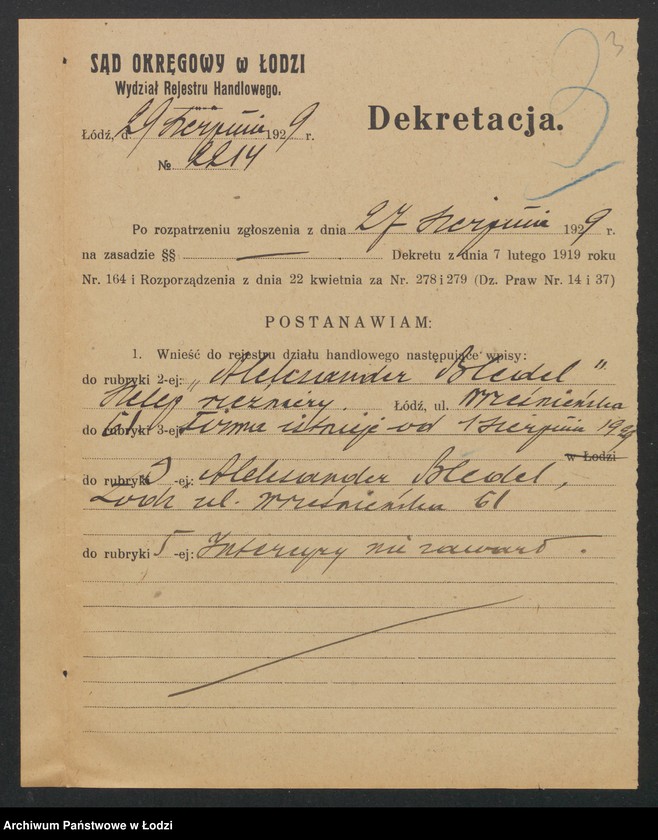 3
SĄD OKRĘGOWY w ŁODZI
Wydział Rejestru Handlowego.
Łódź, d. 29 Sierpnia 1929 r.
№ 2214
Dekretacja.
Po rozpatrzeniu zgłoszenia z dnia 27 Sierpnia 1929 r.
na zasadzie §§ — Dekretu z dnia 7 lutego 1919 roku
Nr. 164 i Rozporządzenia z dnia 22 kwietnia za Nr. 278 i 279 (Dz. Praw Nr. 14 i 37)
POSTANAWIAM:
1. Wnieść do rejestru działu handlowego następujące wpisy:
do rubryki 2-ej: „Aleksander Bledel"
Sklep rzeźniczy. Łódź, ul. Wrześnieńska
61
do rubryki 3-ej Firma istnieje od 1 Sierpnia
w Łodzi
do rubryki -ej: Aleksander Bledel,
Łódź ul. Wrześnieńska 61
do rubryki 5-ej: Intercyzy nie zawarł.
Archiwum Państwowe w Łodzi